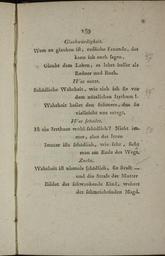 159
Glaubwürdigkeit.
Wem zu glauben ist, redliche Freunde, das
kann ich euch sagen,
Glaubt dem Leben; es lehrt besser als
Redner und Buch.
Was nutzt.
Schädliche Wahrheit, wie zieh ich sie vor
dem nützlichen Irrthum!
Wahrheit heilet den Schmerz, den sie
vielleicht uns erregt.
Was schadet.
Ist ein Irrthum wohl schädlich? Nicht im-
mer, aber das Irren
Immer ists schädlich, wie sehr, sieht
man am Ende des Wegs.
Zucht.
Wahrheit ist niemals schädlich, sie straft —
und die Strafe der Mutter
Bildet das schwankende Kind, wehret
der schmeichelnden Magd.